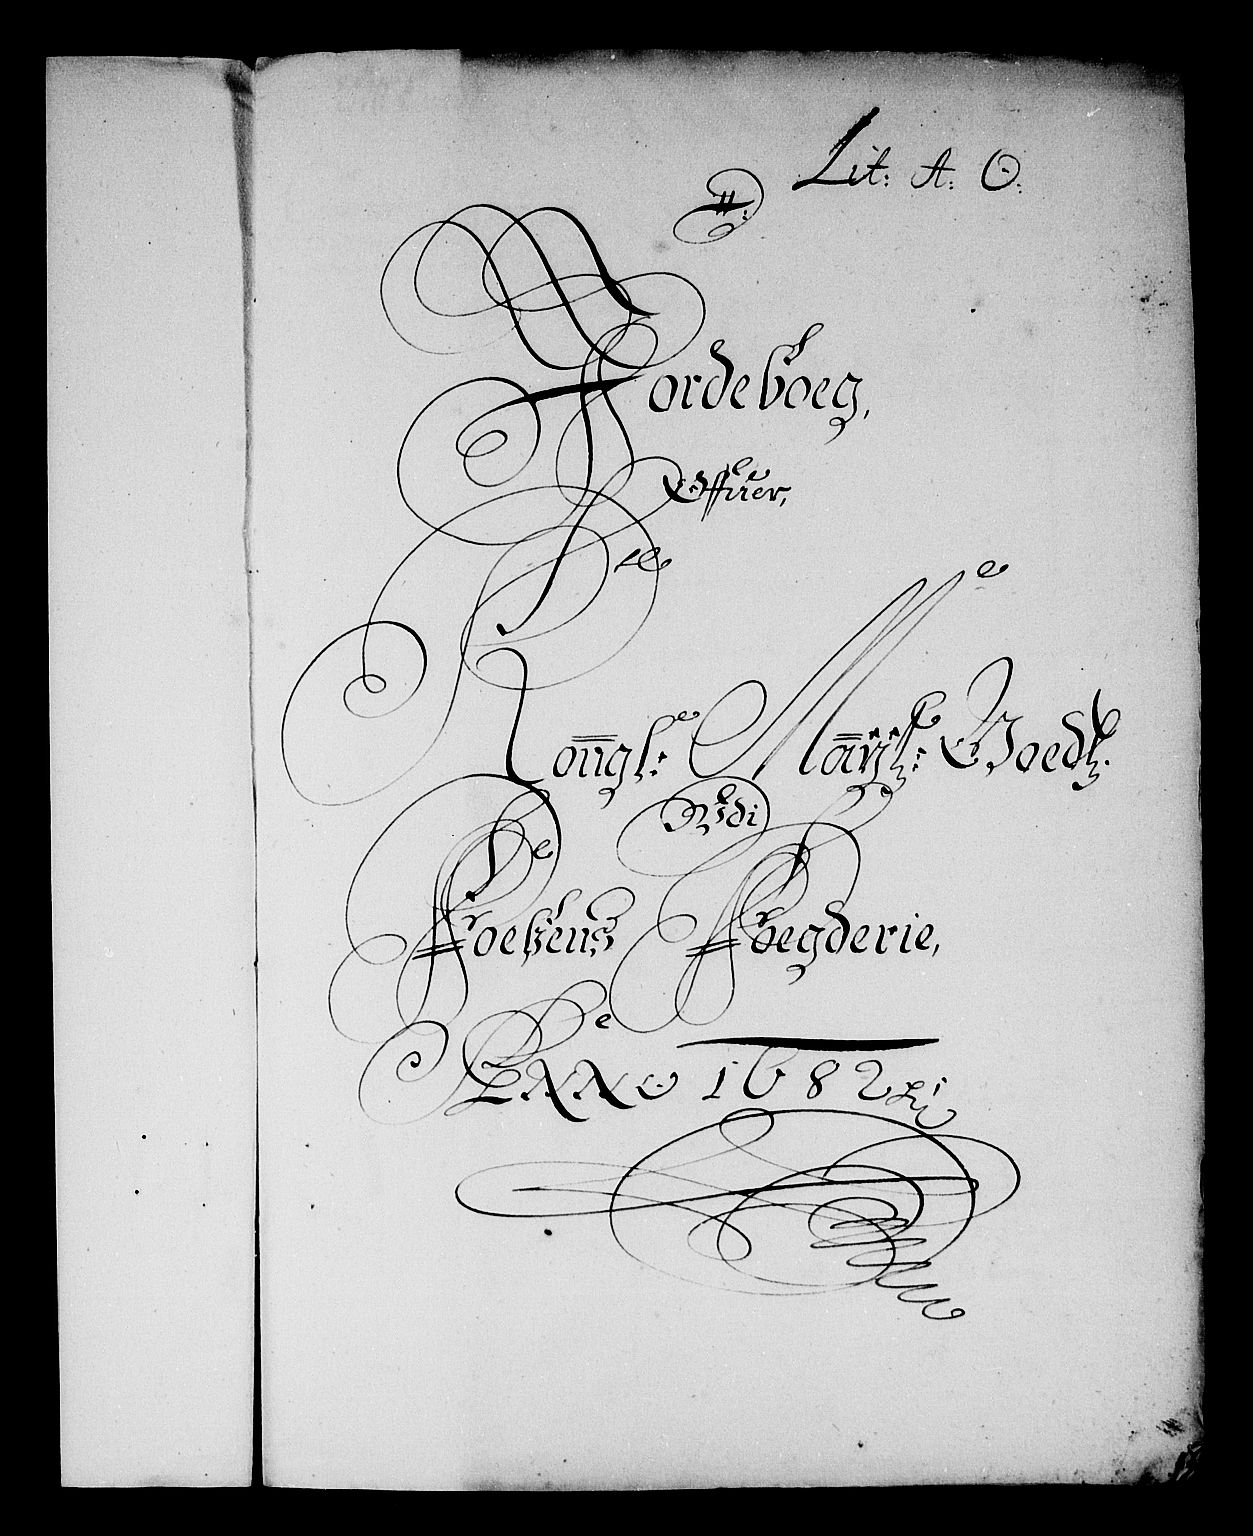 Lit: A. O.
Jordeboeg,
Offuer,
Kongl: Maÿtz: Goedtz.
Udi
Foszens Foegderie,
ANNO 1682